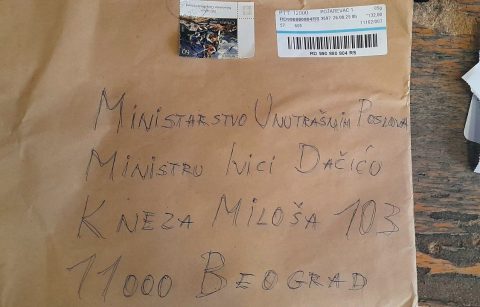 PTT-12000 POŽAREVAC 1
RD 990 980 804 RS
MINISTARSTVO UNUTRAŠNJIH POSLOVA
MINISTRU IVICI DAČIĆU
KNEZA MILOŠA 103
11000 BEOGRAD